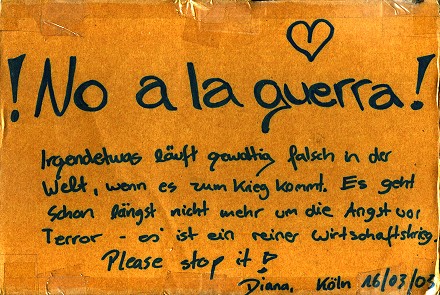 !No a la guerra!
Irgendetwas läuft gewaltig falsch in der
Welt, wenn es zum Krieg kommt. Es geht
schon längst nicht mehr um die Angst vor
Terror - es ist ein reiner Wirtschaftskrieg.
Please stop it!
Diana, Köln 16/03/03